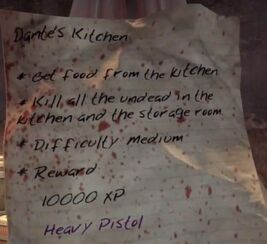 Dante's Kitchen
* Get food from the kitchen
* Kill all the undead in the
kitchen and the storage room
* Difficulty medium
* Reward
10000 XP
Heavy Pistol